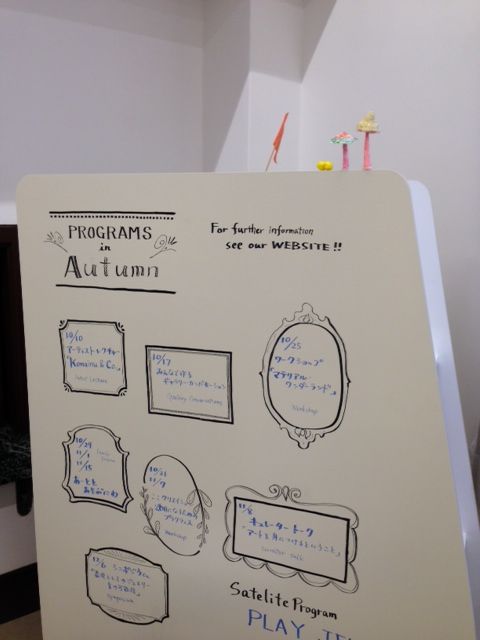 PROGRAMS
in
Autumn
For further information
see our WEBSITE!!
10/10
アーティスト・レクチャー
"Komainu & Co."
Artist Lecture
10/17
みんなで作る
ギャラリーカンバセーション
Gallery Conversations
10/25
ワークショップ
「マテリアル
ワンダーランド」
Workshop
10/24
11/1
11/15
10/31
11/7
Workshop
11/8
キュレータートーク
「アートを身につけるということ」
Curator talk
シンポジウム
Symposium
Satelite Program
PLAY